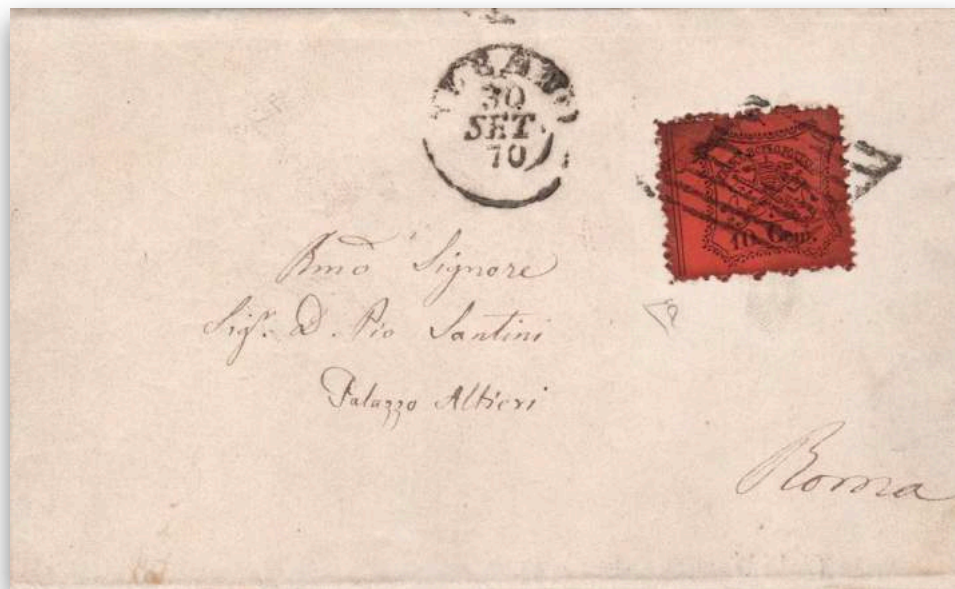 30
SET
70
10 Cent.
Signore
Sigr. D. Pio Santini
Palazzo Altieri
Roma